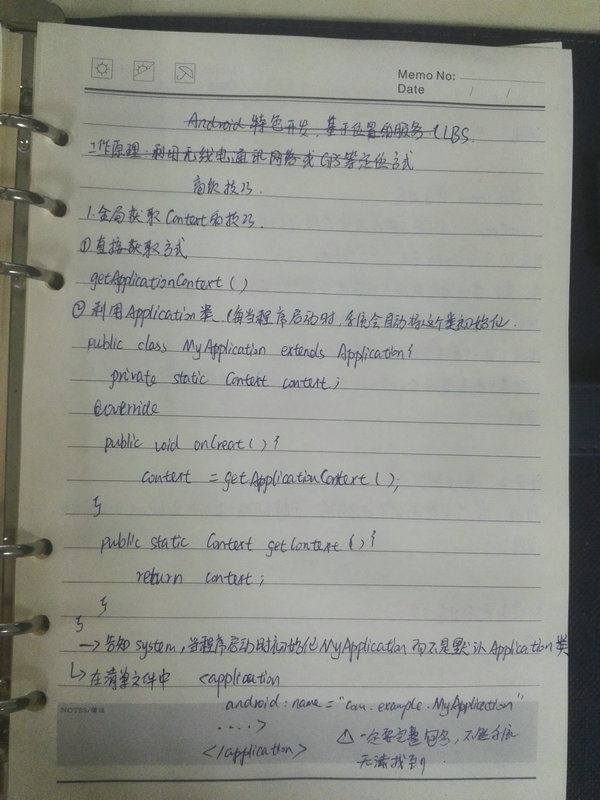 Memo No:
Date / /
Android 特色开发，基于位置的服务 (LBS
工作原理：利用无线电通讯网络或GPS等定位方式
高级技巧.
1.全局获取Context的技巧.
①直接获取方式
getApplicationContext()
②利用Application类 (每当程序启动时,系统会自动将这个类初始化.
public class MyApplication extends Application{
private static Context context;
@override
public void onCreat(){
context = getApplicationContext();
}
public static Context getContext(){
return context;
}
}
→告知system,当程序启动时初始化MyApplication而不是默认Application类
↳在清单文件中 <application
android:name="com.example.MyApplication"
....>
NOTES/备误
</application> △一定要完整包名，不然系统
无法找到.